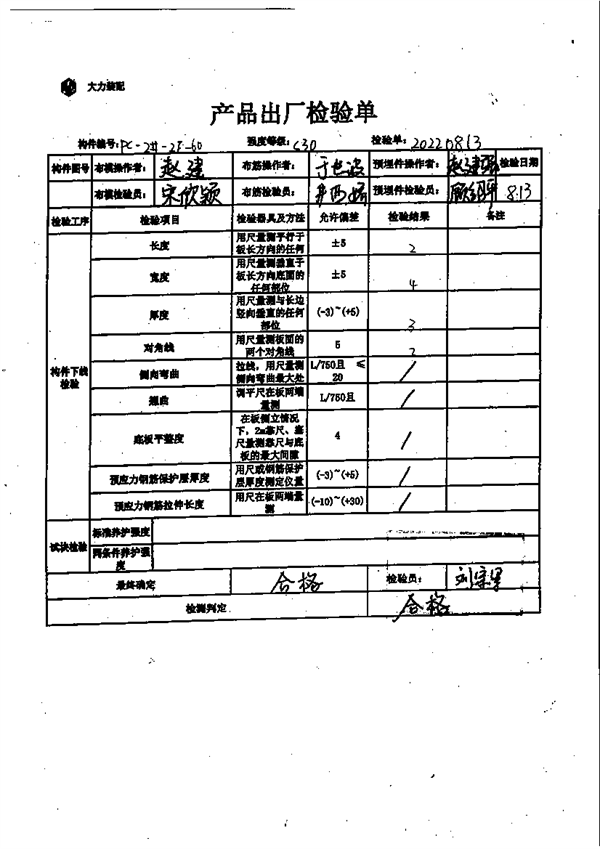 大力装配
产品出厂检验单
构件编号: PC-2#-2F-60 强度等级: C30 检验单: 20220813
构件图号 布模操作者: 赵建 布筋操作者: 预埋件操作者: 赵建强 检验日期
布模检验员: 宋欣颖 布筋检验员: 预埋件检验员: 8.13
检验工序 检验项目 检验器具及方法 允许偏差 检验结果 备注
构件下线检验
长度 用尺量测平行于板长方向的任何 ±5 2
宽度 用尺量测垂直于板长方向底面的任何部位 ±5 4
厚度 用尺量测与长边竖向垂直的任何部位 (-3)~(+5) 3
对角线 用尺量测板面的两个对角线 5 2
侧向弯曲 拉线,用尺量测侧向弯曲最大处 L/750且 ≤20 /
翘曲 调平尺在板两端量测 L/750且 /
底板平整度 在板侧立情况下,2m靠尺、塞尺量测靠尺与底板的最大间隙 4 /
预应力钢筋保护层厚度 用尺或钢筋保护层厚度测定仪量 (-3)~(+5) /
预应力钢筋拉伸长度 用尺在板两端量测 (-10)~(+30) /
试块检验 标准养护强度
同条件养护强度
最终确定 合格 检验员:
检测判定 合格